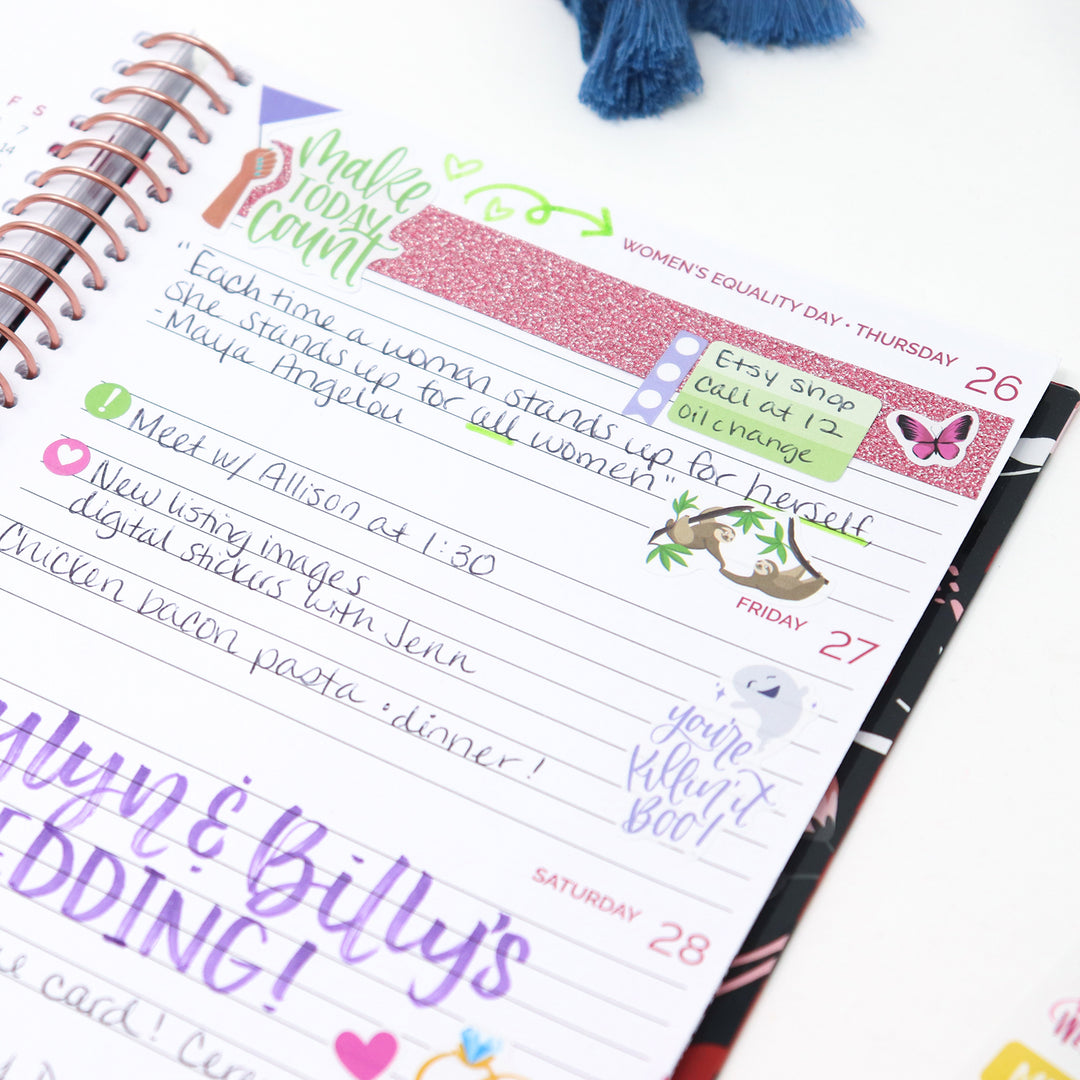 F S
7
14
make
TODAY
count
WOMEN'S EQUALITY DAY • THURSDAY 26
"Each time a woman stands up for herself,
she stands up for all women"
-Maya Angelou
Etsy shop
Call at 12
oil change
FRIDAY 27
! Meet w/ Allison at 1:30
New listing images
digital stickers with Jenn
Chicken bacon pasta • dinner!
you're
Killin' it
Boo!
SATURDAY 28
& Billy's
card!